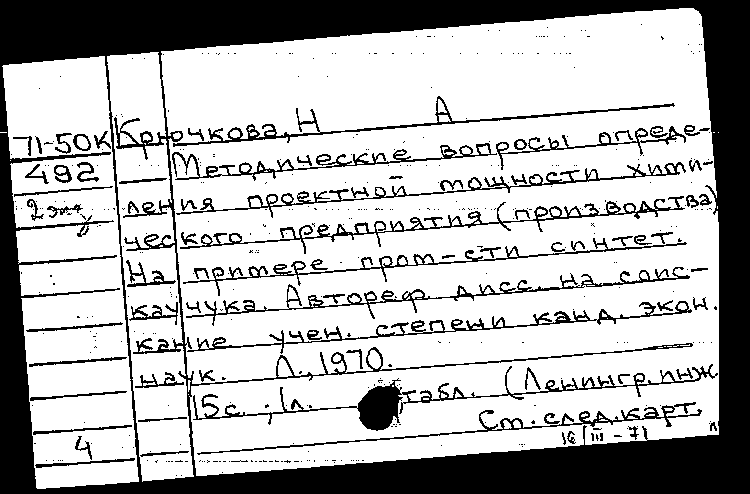 71-50К Крючкова, Н А
492 Методические вопросы опреде-
2 экз ления проектной мощности хими-
ческого предприятия (производства)
На примере пром-сти синтет.
каучука. Автореф. дисс. на соис-
кание учен. степени канд. экон.
наук. Л., 1970.
15 с.; 1 л. табл. (Ленингр. инж
Ст. след. карт.
4 16/III-71